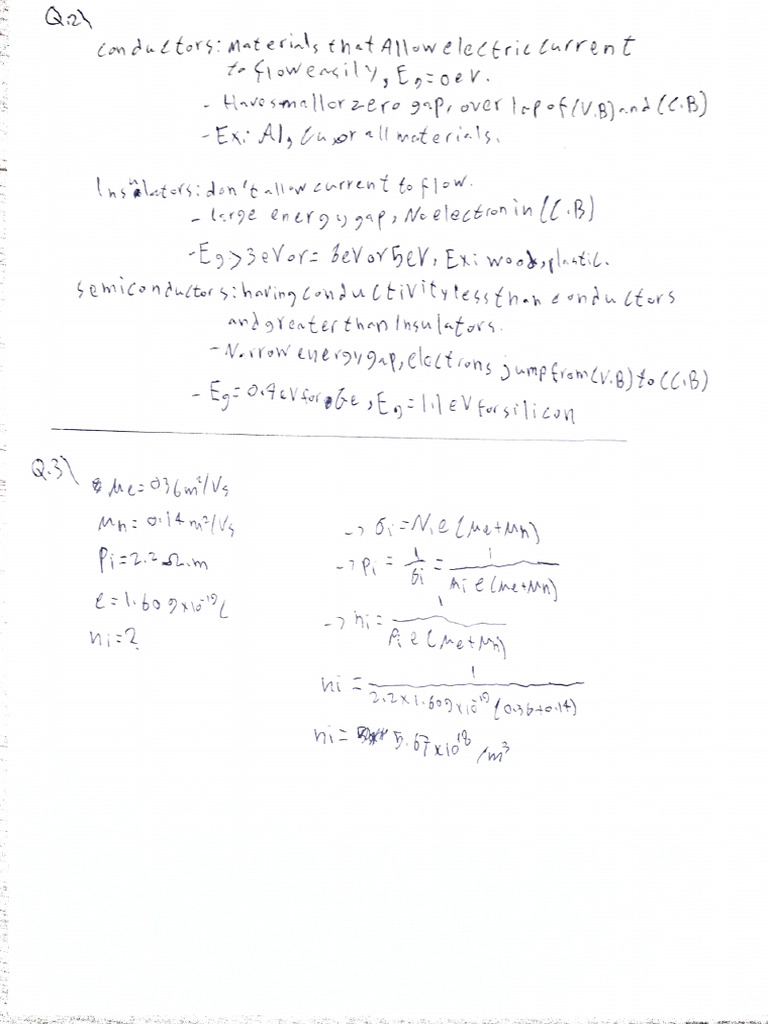 Q.2)
Conductors: Materials that Allow electric current
to flow easily, Eg=0eV.
- Have small or zero gap, over lap of (V.B) and (C.B)
- Ex: Al, Cu or all materials.
Insulators: don't allow current to flow.
- large energy gap, No electron in (C.B)
- Eg>3eV or = 3eV or 5eV, Ex: wood, plastic.
Semiconductors: having conductivity less than conductors
and greater than Insulators.
- Narrow energy gap, electrons jump from (V.B) to (C.B)
- Eg=0.7eV for Ge, Eg=1.1eV for silicon
Q.3)
μe=0.36m²/Vs
μh=0.14m²/Vs
ρi=2.2Ω.m
e=1.609×10⁻¹⁹C
ni=?
→ σi=Nie(μe+μh)
→ ρi = 1/σi = 1/nie(μe+μh)
→ ni = 1/ρie(μe+μh)
ni = 1/2.2×1.609×10⁻¹⁹(0.36+0.14)
ni = 5.67×10¹⁸ /m³